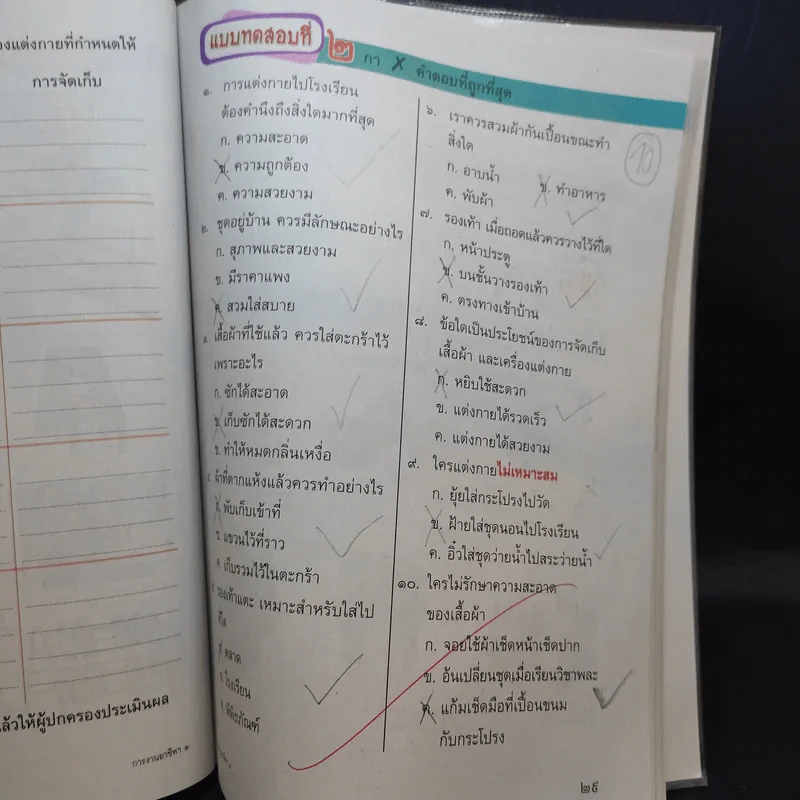 องแต่งกายที่กำหนดให้
การจัดเก็บ
ล้วให้ผู้ปกครองประเมินผล
การงานอาชีพฯ ๑
แบบทดสอบที่ ๒
กา X คำตอบที่ถูกที่สุด
๑. การแต่งกายไปโรงเรียน
ต้องคำนึงถึงสิ่งใดมากที่สุด
ก. ความสะอาด
ข. ความถูกต้อง
ค. ความสวยงาม
๒. ชุดอยู่บ้าน ควรมีลักษณะอย่างไร
ก. สุภาพและสวยงาม
ข. มีราคาแพง
ค. สวมใส่สบาย
๓. เสื้อผ้าที่ใช้แล้ว ควรใส่ตะกร้าไว้
เพราะอะไร
ก. ซักได้สะอาด
ข. เก็บซักได้สะดวก
ข. ทำให้หมดกลิ่นเหงื่อ
๔. ผ้าที่ตากแห้งแล้วควรทำอย่างไร
ก. พับเก็บเข้าที่
ข. แขวนไว้ที่ราว
ค. เก็บรวมไว้ในตะกร้า
๕. รองเท้าแตะ เหมาะสำหรับใส่ไป
ที่ใด
ก. ตลาด
ข. โรงเรียน
ค. พิพิธภัณฑ์
๖. เราควรสวมผ้ากันเปื้อนขณะทำ
สิ่งใด
10
ก. อาบน้ำ
ข. ทำอาหาร
ค. พับผ้า
๗. รองเท้า เมื่อถอดแล้วควรวางไว้ที่ใด
ก. หน้าประตู
ข. บนชั้นวางรองเท้า
ค. ตรงทางเข้าบ้าน
๘. ข้อใดเป็นประโยชน์ของการจัดเก็บ
เสื้อผ้า และเครื่องแต่งกาย
ก. หยิบใช้สะดวก
ข. แต่งกายได้รวดเร็ว
ค. แต่งกายได้สวยงาม
๙. ใครแต่งกายไม่เหมาะสม
ก. ยุ้ยใส่กระโปรงไปวัด
ข. ฝ้ายใส่ชุดนอนไปโรงเรียน
ค. อิ๋วใส่ชุดว่ายน้ำไปสระว่ายน้ำ
๑๐. ใครไม่รักษาความสะอาด
ของเสื้อผ้า
ก. จอยใช้ผ้าเช็ดหน้าเช็ดปาก
ข. อันเปลี่ยนชุดเมื่อเรียนวิชาพละ
ค. แก้มเช็ดมือที่เปื้อนขนม
กับกระโปรง
๒๙